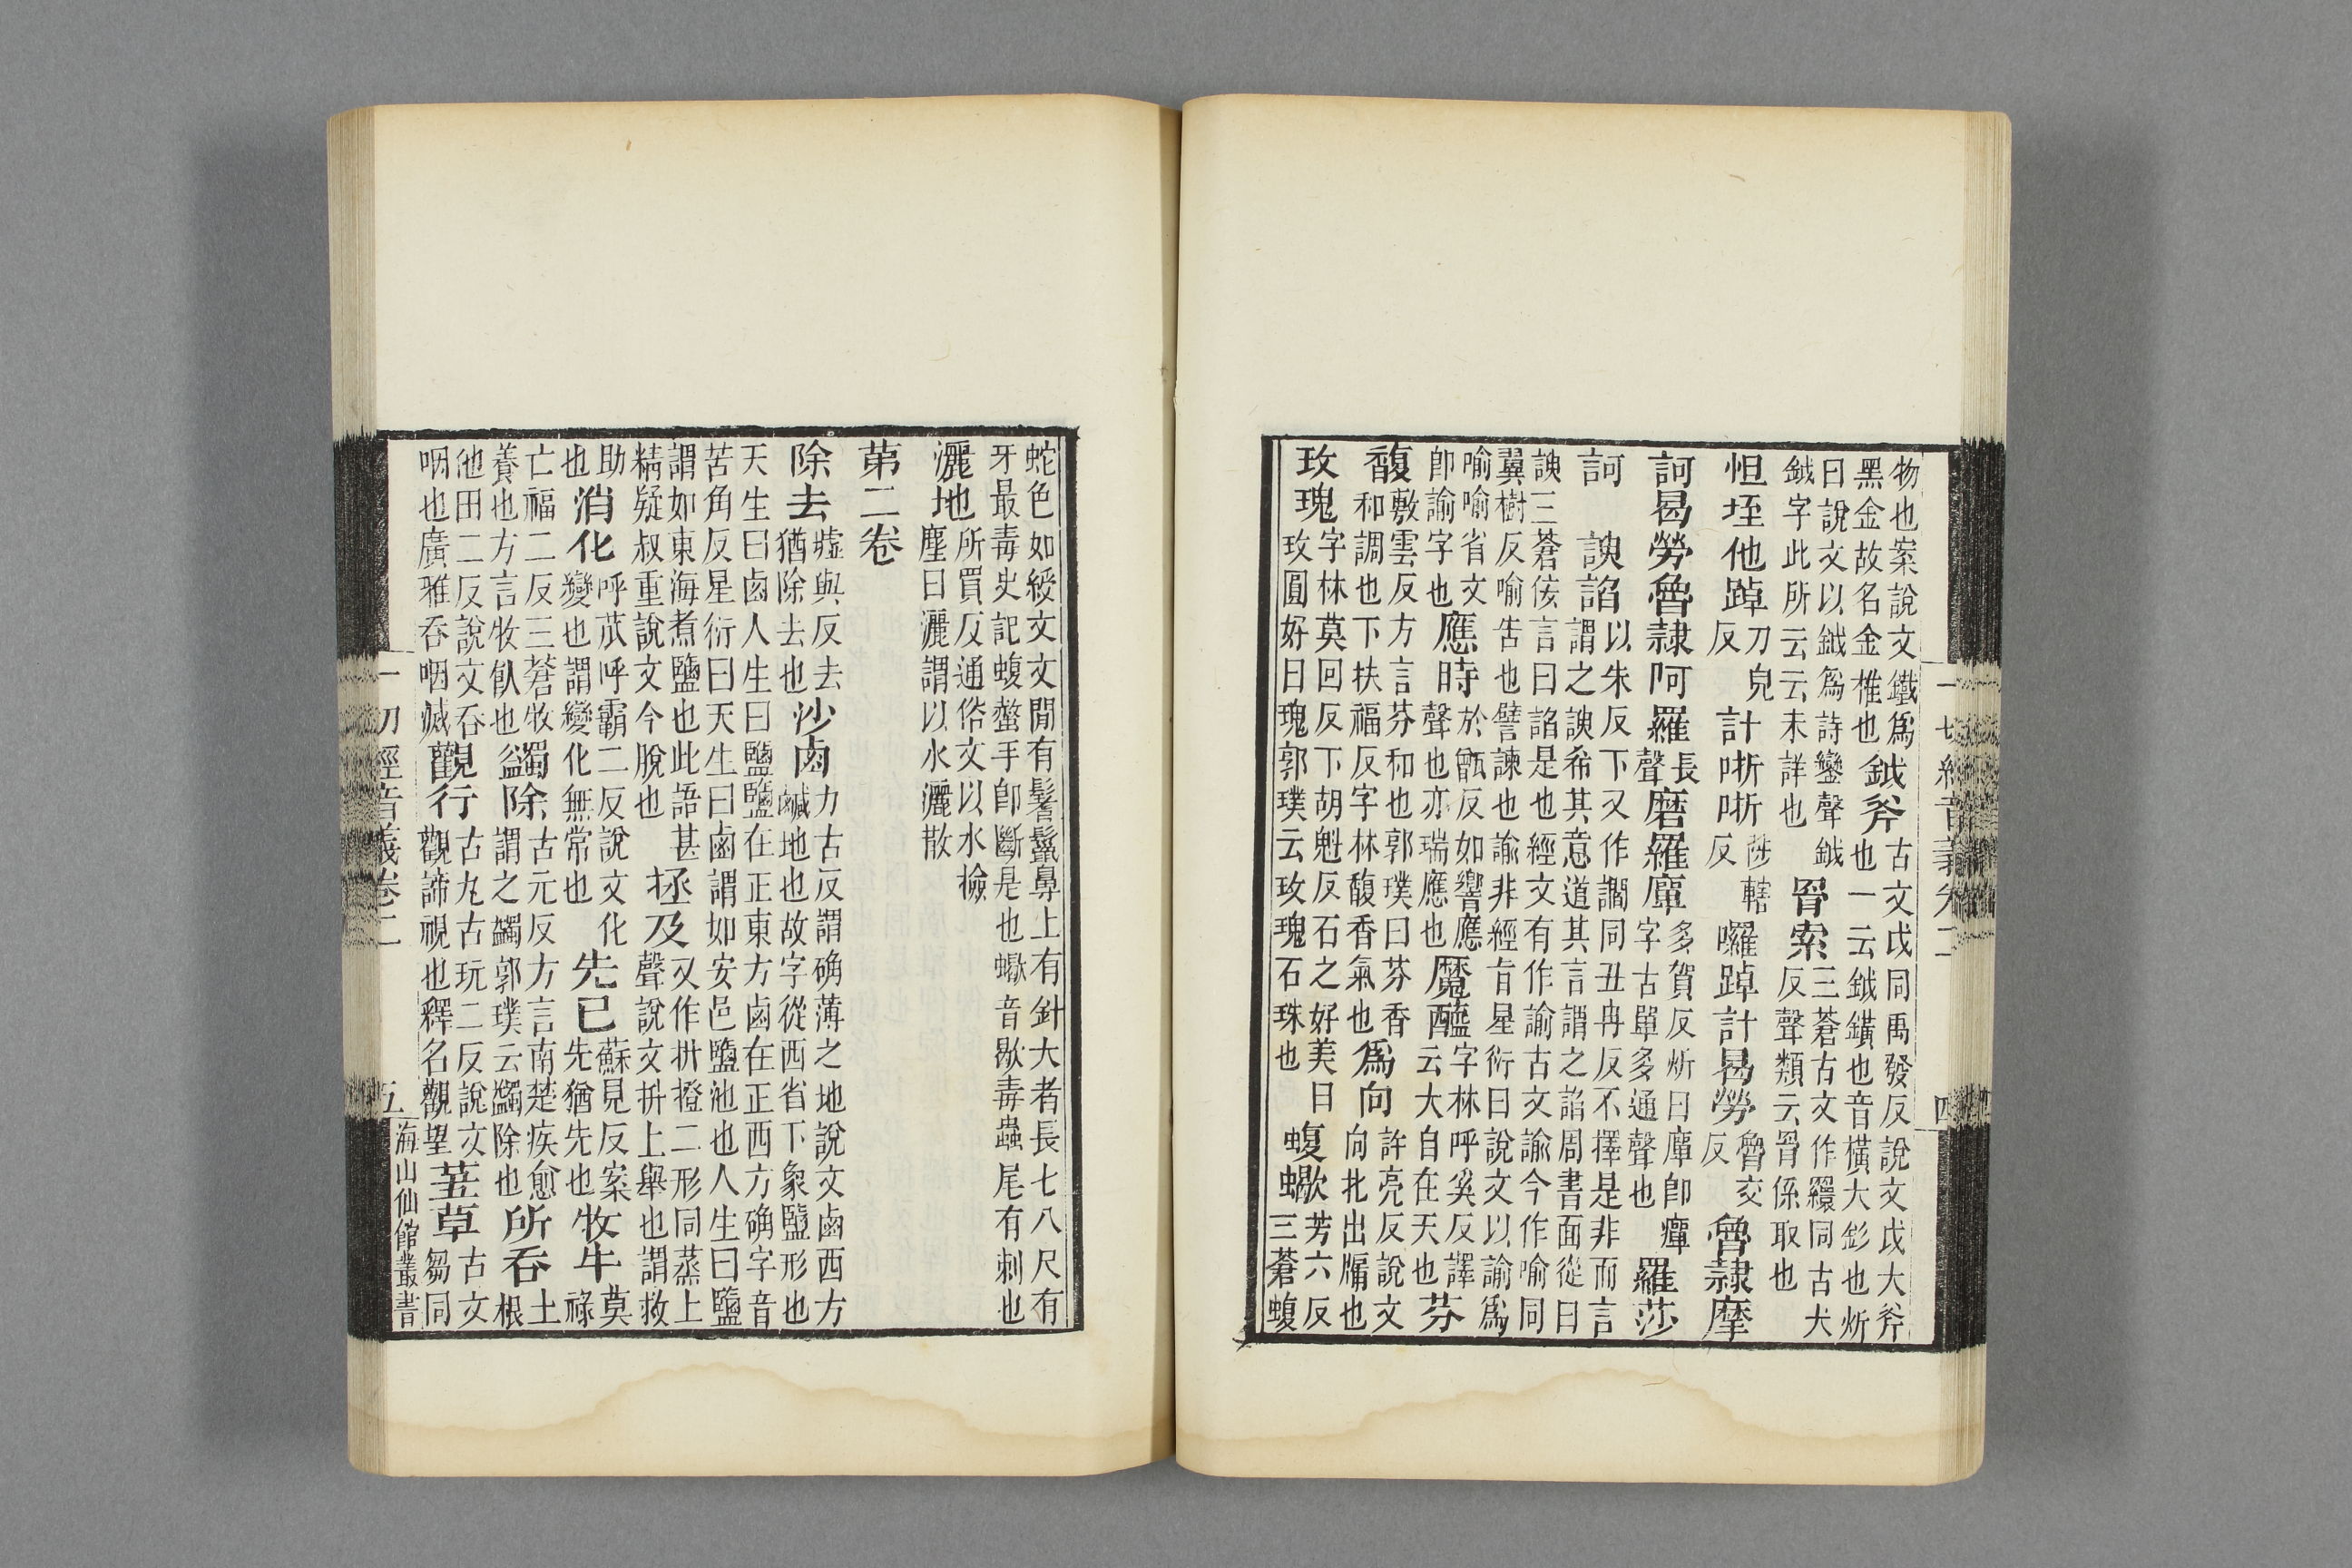 一切經音義卷二 四
物也案說文鐵爲黑金故名金椎也鉞斧古文戉同禹發反說文戉大斧也一云鉞鐄也音橫大釤也炘
曰說文以鉞爲詩鑾聲鉞鉞字此所云云未詳也罥索三蒼古文作羂同古犬反聲類云罥係取也
怛垤他踔刀皃反計哳哳陟轄反囉踔計曷勞魯交反魯隷摩
訶曷勞魯隷阿羅長聲磨羅㢆多賀反炘曰㢆卽癉字古單多通聲也羅莎
訶 諛諂以朱反下又作讇同丑冉反不擇是非而言謂之諛希其意道其言謂之諂周書面從曰
諛三蒼侫言曰諂是也經文有作諭古文諭今作喻同翼樹反喻告也譬諫也諭非經旨星衍曰說文以諭爲
喻喻省文卽諭字也應時於甑反如響應聲也亦瑞應也魔醯字林呼奚反譯云大自在天也芬
馥敷雲反方言芬和也郭璞曰芬香和調也下扶福反字林馥香氣也爲向許亮反說文向北出牖也
玫瑰字林莫回反下胡魁反石之好美曰玫圓好曰瑰郭璞云玫瑰石珠也蝮蠍芳六反三蒼蝮
蛇色如綬文文閒有髻鬣鼻上有針大者長七八尺有牙最毒史記蝮螫手卽斷是也蠍音歇毒蟲尾有刺也
灑地所買反通俗文以水㩜塵曰灑謂以水灑散
第二卷
除去墟與反去猶除去也沙鹵力古反謂确薄之地說文鹵西方鹹地也故字從西省下象鹽形也
天生曰鹵人生曰鹽鹽在正東方鹵在正西方确字音苦角反星衍曰天生曰鹵謂如安邑鹽池也人生曰鹽
謂如東海煮鹽也此語甚精疑叔重說文今脫也拯及又作抍撜二形同蒸上聲說文抍上舉也謂救
助也消化呼瓜呼霸二反說文化變也謂變化無常也先已蘇見反案先猶先也牧牛莫祿
亡福二反三蒼牧養也方言牧飤也蠲除古元反方言南楚疾愈謂之蠲郭璞云蠲除也所吞土根
他田二反說文吞咽也廣雅吞咽滅觀行古丸古玩二反說文觀諦視也釋名觀望草古文芻同
一切經音義卷二 五 海山仙館叢書